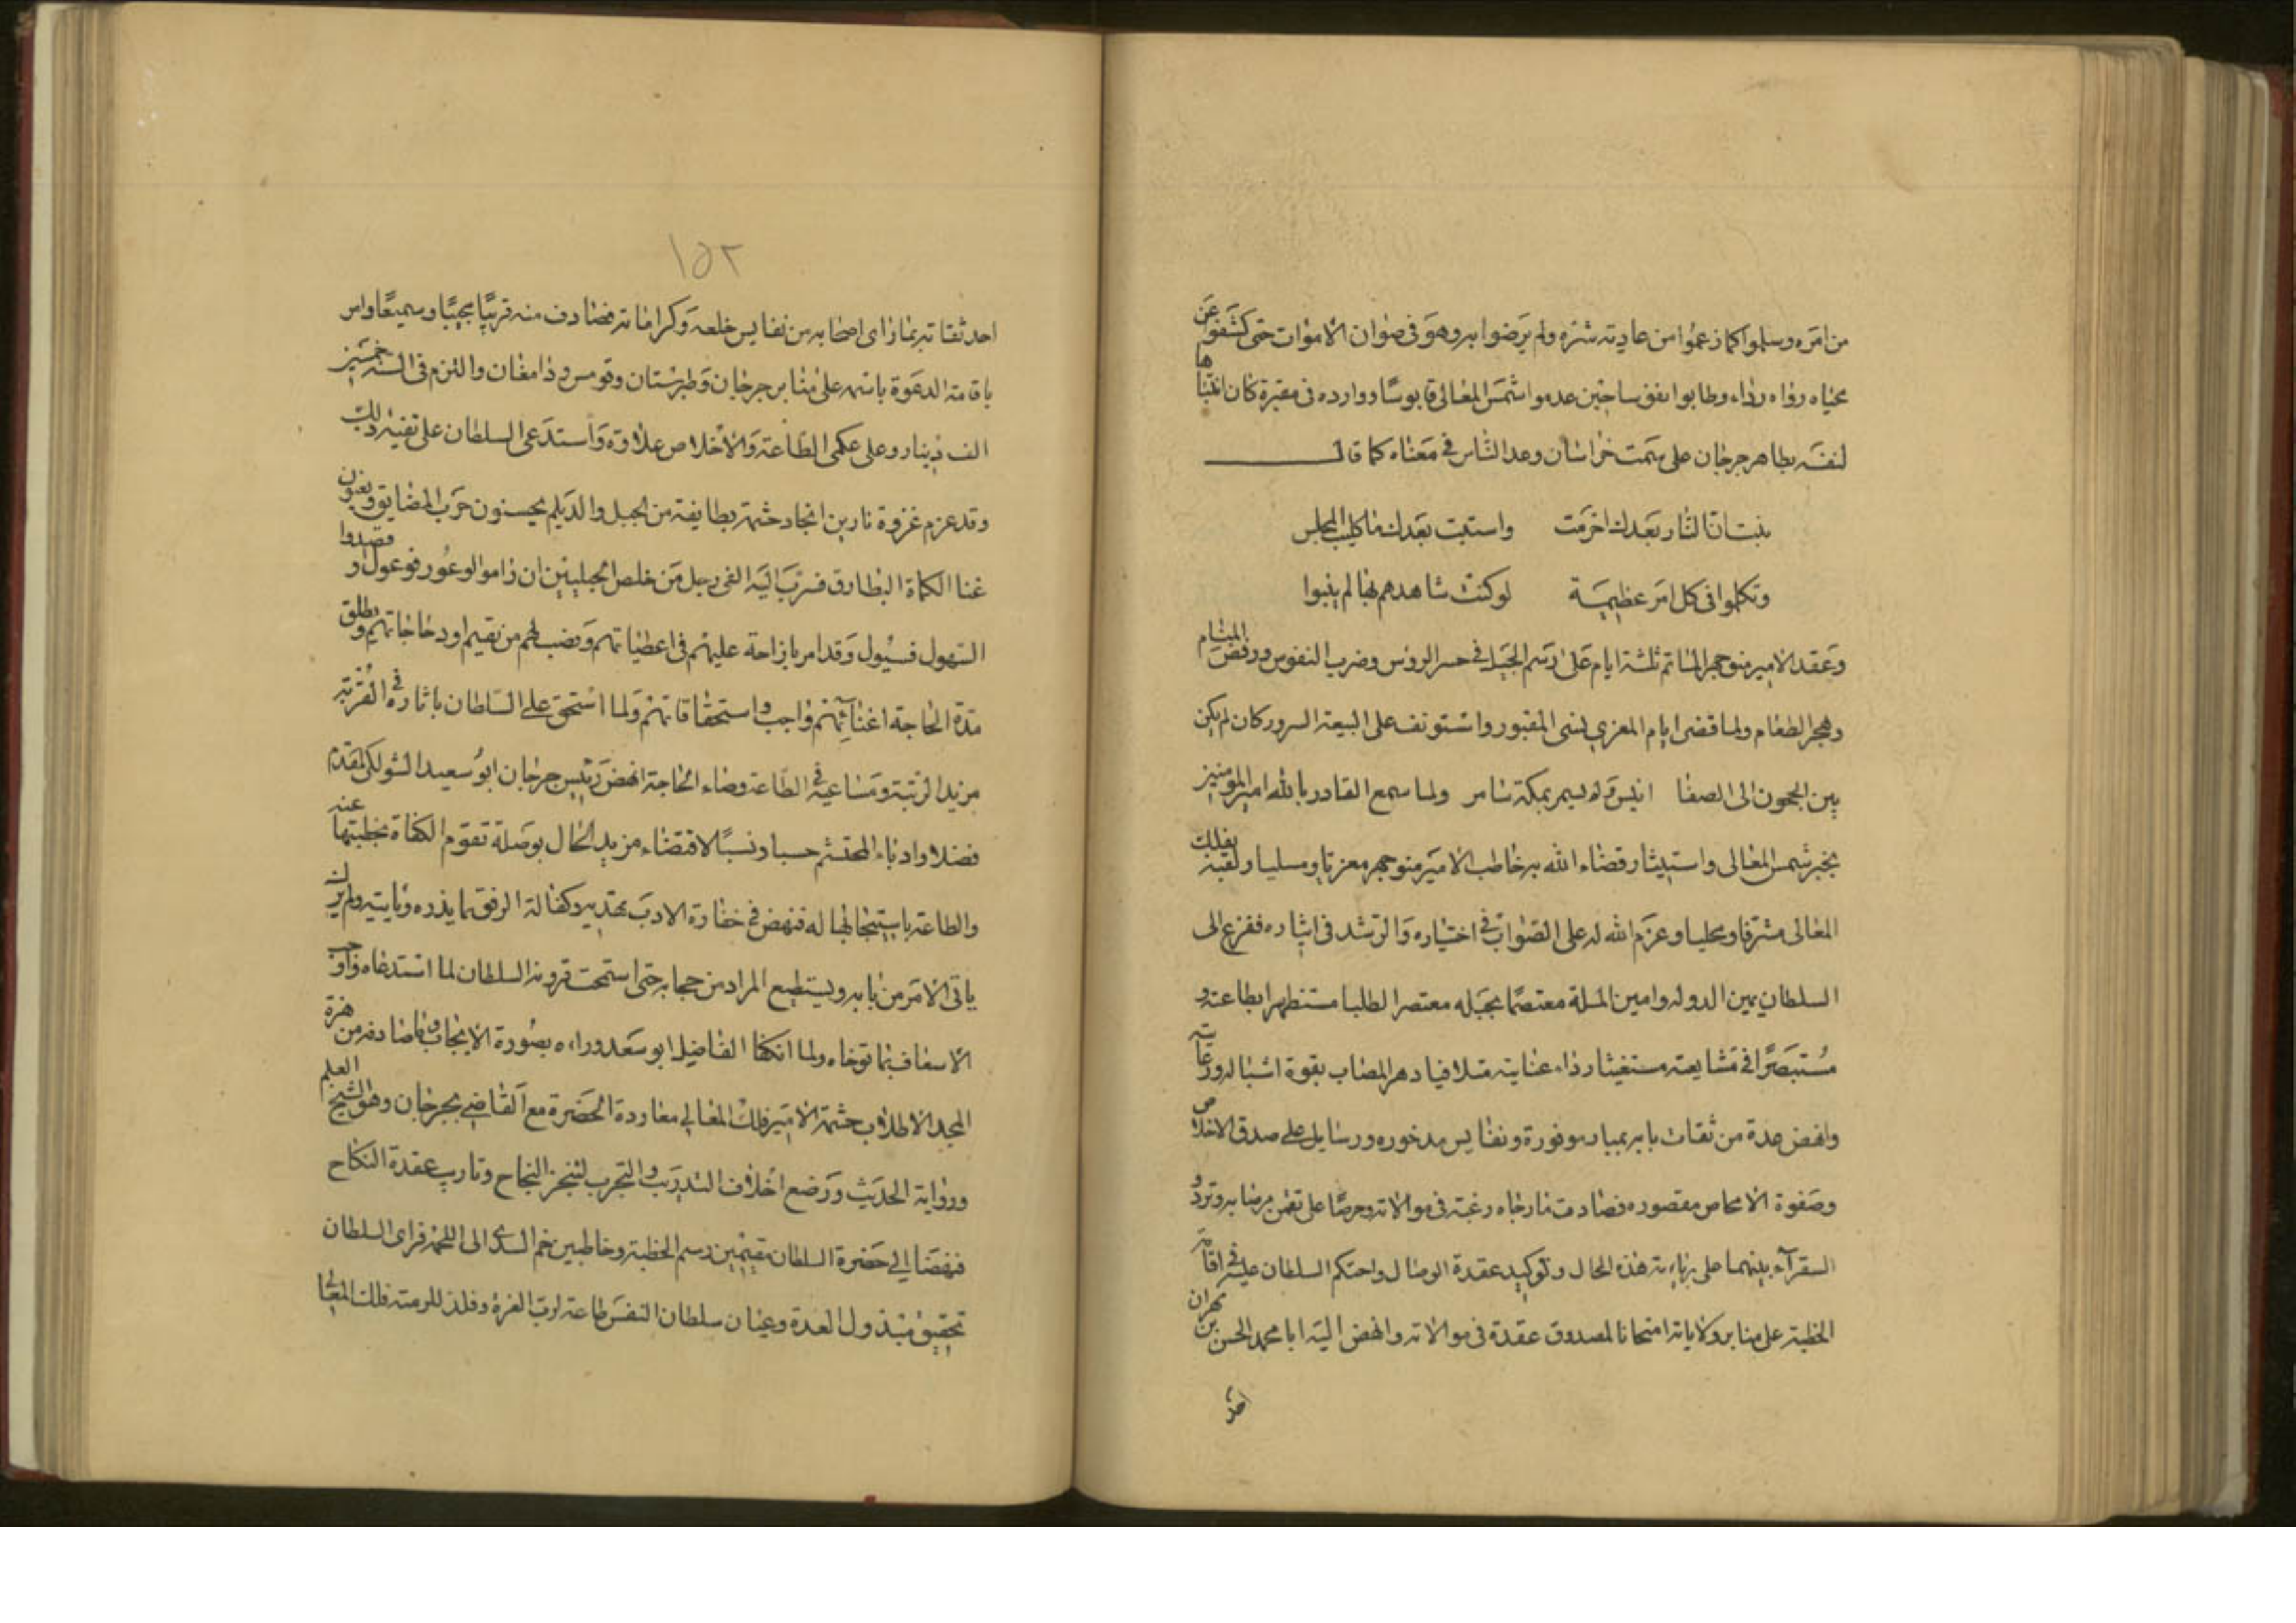 من امره وسلموا كما زعموا من عاديته شره ولم يرضوا به وهو فى صوان الاموات حتى كشفوا عن
محياه رواه رداء وطابوا نفوسا حين عدموا شمس المعالى قابوسا ووارده فى مقبرة كان ابتناها
لنفسه بظاهر جرجان على سمت خراسان وعد الناس فى معناه كما قال
نبئت ان النار بعدك اخرمت واستبت بعدك يا كليب المجلس
وتكلموا فى كل امر عظيمة لو كنت شاهدهم بها لم ينبوا
وعقد الامير منوجهر المأتم ثلثة ايام على رسم الجيل فى حسر الروس وضرب النفوس ورفض المنام
وهجر الطعام ولما قضى ايام المعزى نسى المقبور واستونف على البيعة السرور كان لم يكن
بين الحجون الى الصفا انيس ولم يسمر بمكة سامر ولما سمع القادر بالله امير المومنين
بخبر شمس المعالى واستيثار قضاء الله به خاطب الامير منوجهر معزيا ومسليا ولقبه بفلك
المعالى مشرفا ومحليا وعزم الله له على الصواب فى اختياره والرشد فى ايثاره ففزع الى
السلطان يمين الدوله وامين الملة معتصما بحبله معتصرا لطلبا مستظهرا بطاعته و
مستبصرا فى مشايعته مستغيثا رداء عنايته متلافيا دهر المصاب بقوة اشباله ورعايته
وانهض عدة من ثقات بابه بمبار موفورة ونفايس مدخوره ورسايل على صدق الاخلاص
وصفوة الامحاص مقصوره فصادمت مارجاه رغبة فى موالاته وحرصا على تضمن مرضاته وتردد
السفرآء بينهما على زيادة هذه الحال وتوكيد عقدة الوصال واحتكم السلطان عليه فى اقامة
الخطبة على منابر ولاياته امتحانا لمصدوق عقدة فى موالاته وانهض اليه ابا محمد الحسن بن مهران
احد
١٥٢
احد ثقاته بما زاى اصحابه من نفايس خلعه وكراماته فصادف منه قريبا مجيبا وسميعا وامر
باقامة الدعوة باسمه على منابر جرجان وطبرستان وقومس ودامغان والتزم فى السنة خمسين
الف دينار وعلى عكمى الطاعة والاخلاص علاوة واستدعى السلطان على تفئة ذلك
وقد عزم غزوة نارين انجاد حشمه بطايفة من الجبل والديلم يحسنون حرب المضايق ويغنون
غنا الكماة البطارق فسرب اليه الفى رجل من خلص الجيليين ان راموا الوعور فوعول او قصدوا
السهول فسيول وقد امر بازاحة عليهم فى اعطياتهم ونصب لهم من يقيم اود حاجاتهم ويطلق
مدة الحاجة اغنائهم واجب استحقاقاتهم ولما استحق على السلطان باثاره فى القربة
مزيد الرتبة ومساعيه فى الطاعة وضاء الحاجة انهض رئيس جرجان ابو سعيد الشولكى المقدم
فضلا وادبا المحتشم حسبا ونسبا لاقتضاء مزيد الحال بوصلة تقوم الكفاة بخطبتها عنه
والطاعة باستيجابها له فنهض فى خفارة الادب يهتديه وكفالة الرفق بما يذره وياتيه ولم يزل
ياتى الامر من بابه ويستطيع المراد من حجابه حتى استمحت قرونه السلطان لما استدعاه واوجب
الاسعاف بما توخاه ولما انكفا الفاضل ابو سعد وراءه بصورة الايجاب وما صادفه من هزة
المجد الاطلاب حشمة الامير فلك المعالى معاودة الحضرة مع القاضى بجرجان وهو الشيخ العلم
ورواية الحديث ورضع اخلاف التدرب والتجرب لتنجز النجاح وتارب عقدة النكاح
فنهضا الى حضرة السلطان مقيمين رسم الخطبة وخاطبين ضم السدى الى اللحمة فراى السلطان
تحقيق مبذول العدة وعنان سلطان النفس طاعة لرب العزة وفلذ للرمته فلك المعالى